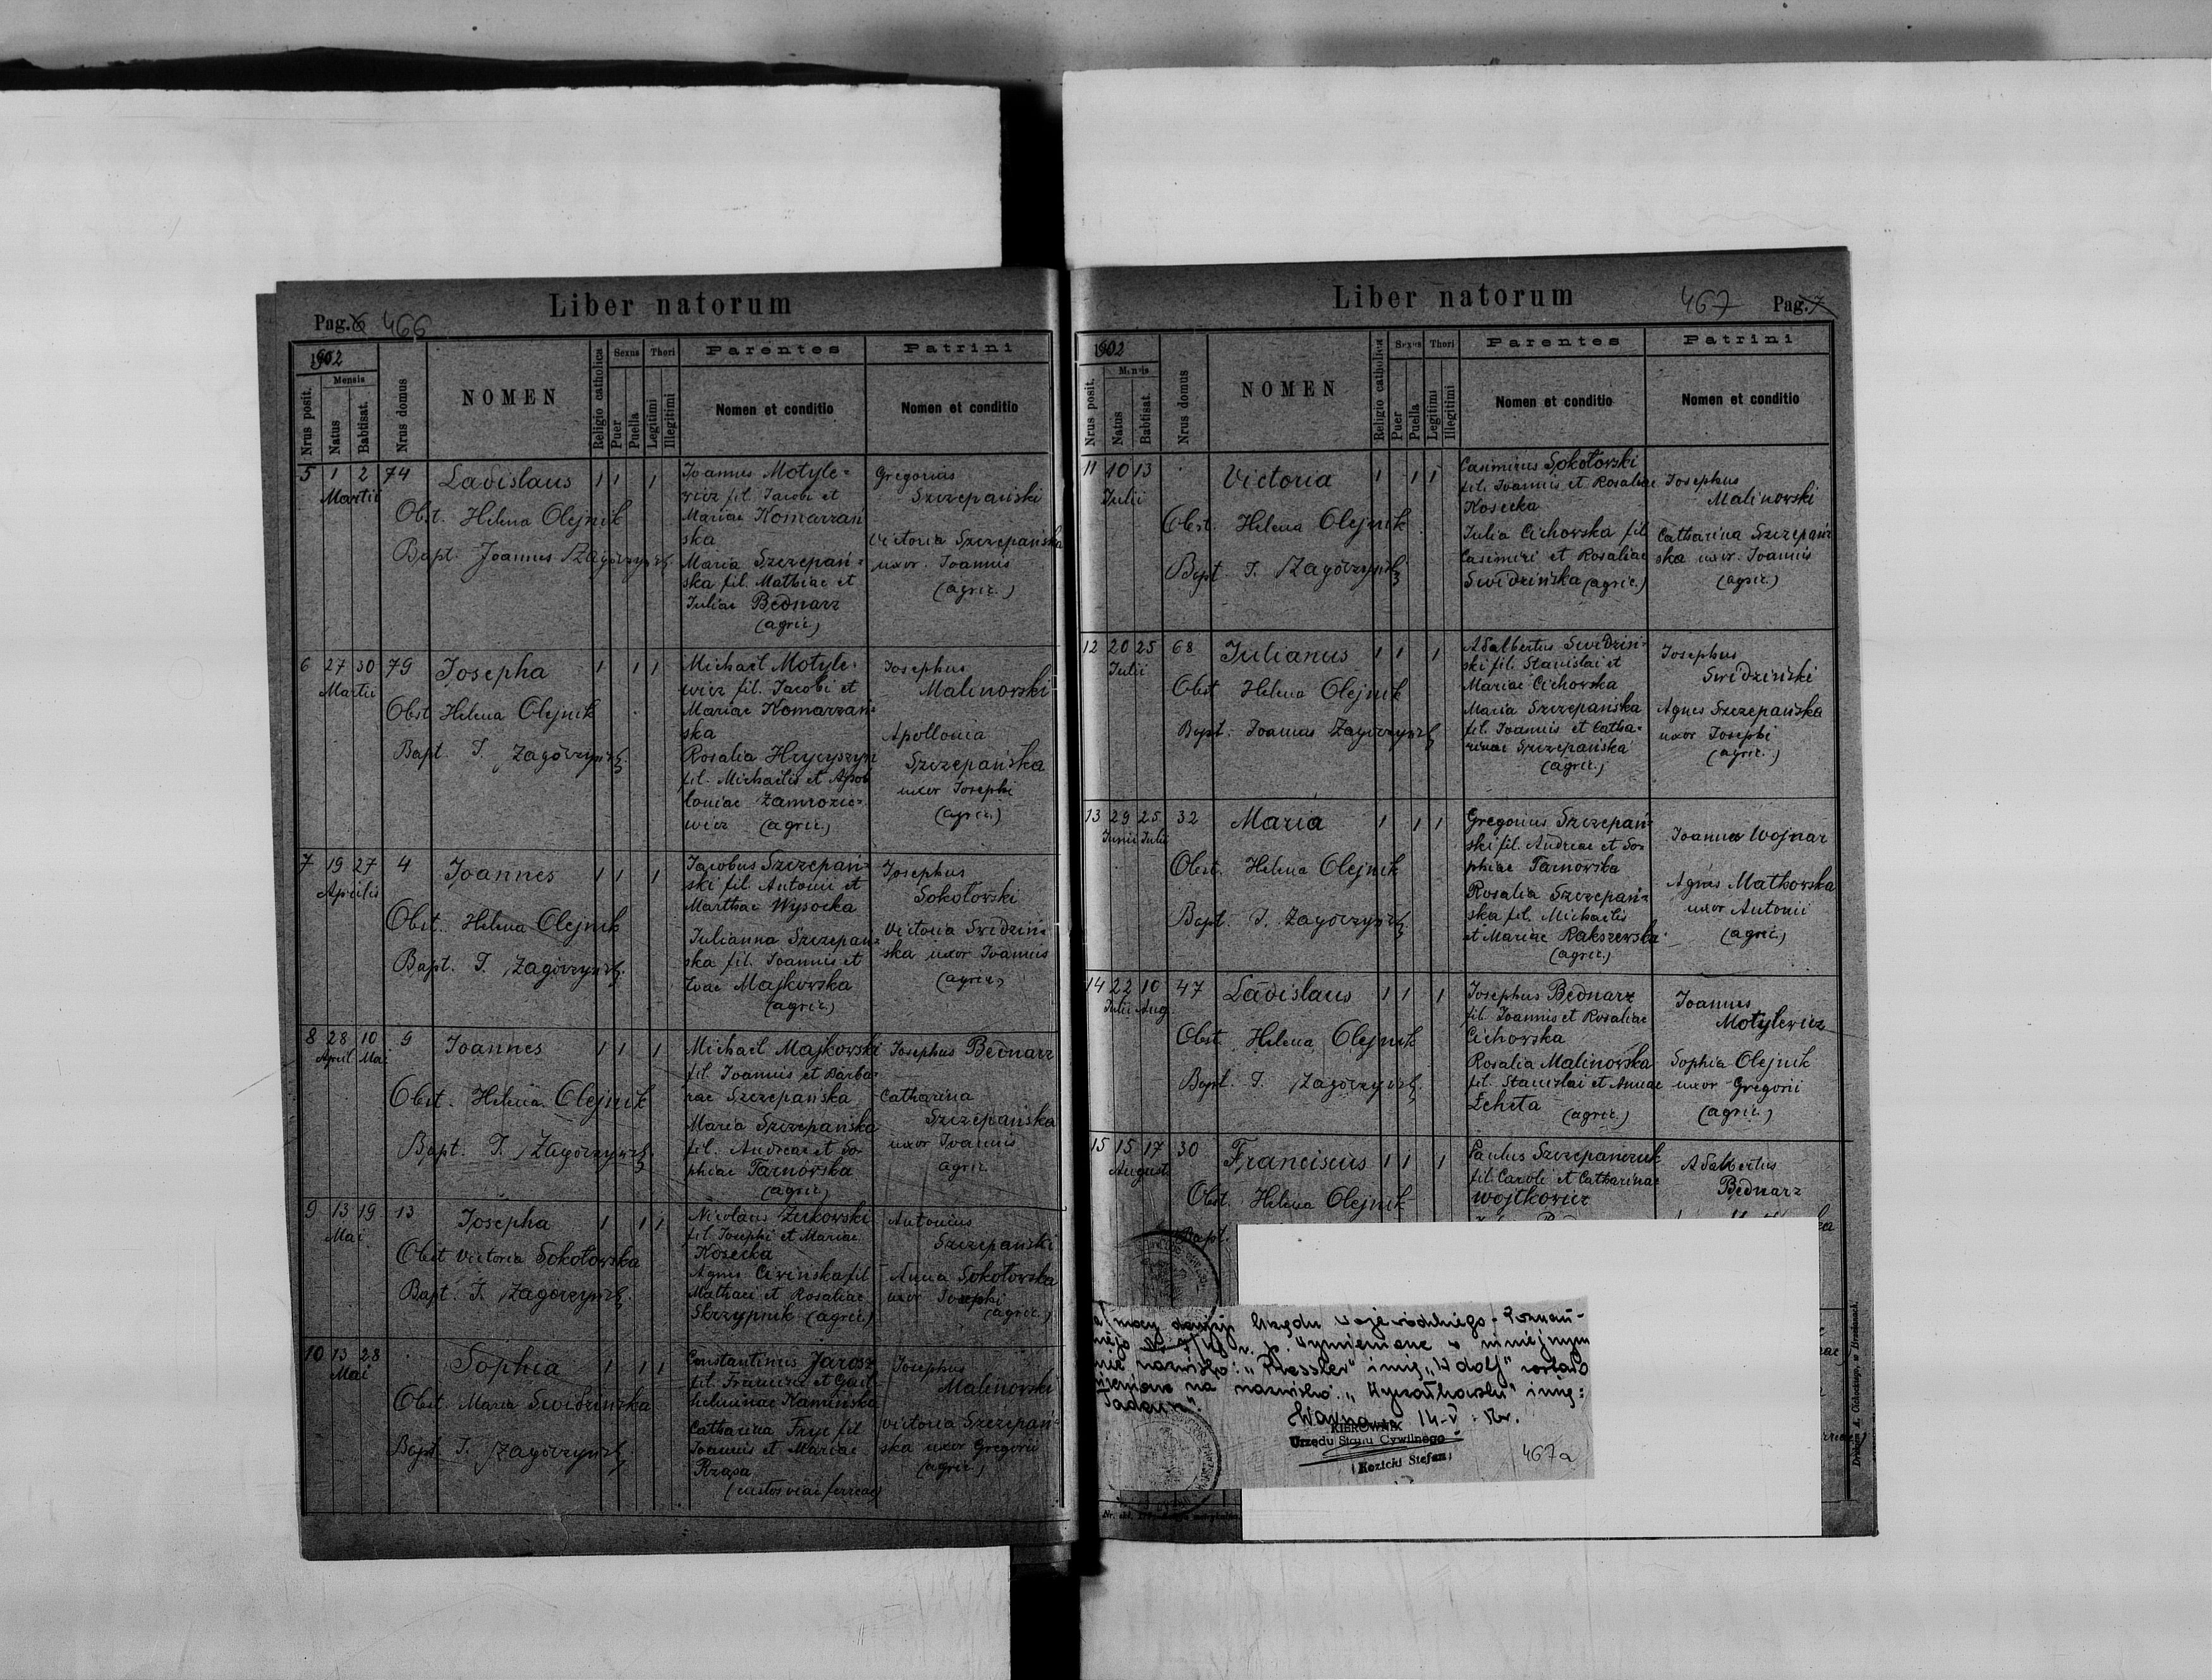 Liber natorum
Pag. 6 466
1902
Mensis
Nrus posit.
Natus
Babtisat.
Nrus domus
NOMEN
Religio catholica
Sexus
Puer
Puella
Thori
Legitimi
Illegitimi
Parentes
Nomen et conditio
Patrini
Nomen et conditio
5 1 2 74 Ladislaus 1 1 1
Martii
Obst. Helena Olejnik
Bapt. Joannes
Joannes Motyle=
wicz fil. Jacobi et
Mariae Komarzań
ska
Maria Szczepań=
ska fil. Mathiae et
Juliae Bednarz
(agric.)
Gregorius
Szczepański
Victoria Szczepańska
uxor. Joannis
(agric.)
6 27 30 79 Josepha 1 1 1
Martii
Obst Helena Olejnik
Bapt. J.
Michaël Motyle=
wicz fil. Jacobi et
Mariae Komarzań=
ska
Rosalia Hrycyszyn
fil. Michaëlis et Apol
loniae Zamrozie=
wicz (agric.)
Josephus
Malinowski
Apollonia
Szczepańska
uxor Josephi
(agric.)
7 19 27 4 Joannes 1 1 1
Aprilis
Obst. Helena Olejnik
Bapt. J.
Jacobus Szczepań=
ski fil. Antonii et
Marthae Wysocka
Julianna Szczepań=
ska fil. Joannis et
Evae Majkowska
(agric.)
Josephus
Sokołowski
Victoria Swidziń=
ska uxor Joannis
(agric.)
8 28 10 9 Joannes 1 1 1
April Mai
Obst. Helena Olejnik
Bapt. J.
Michaël Majkowski
fil. Joannis et Barba=
rae Szczepańska
Maria Szczepańska
fil. Andreae et So=
phiae Tarnowska
(agric.)
Josephus Bednarz
Catharina
Szczepańska
uxor Joannis
agric.
9 13 19 13 Josepha 1 1 1
Mai
Obst Victoria Sokołowska
Bapt. J.
Nicolaus Żukowski
fil Josephi et Mariae
Kosecka
Agnes fil
Mathaei et Rosaliae
Skrzypnik (agric.)
Antonius
Szczepański
Anna Sokołowska
uxor Josephi
(agric.)
10 13 28 Sophia 1 1 1
Mai
Obst. Maria Swidzińska
Bapt J.
Constantinus Jarosz
fil. et Guil
helminae Kamińska
Catharina Fryc fil
Joannis et Mariae
Rząsa
(custos viae ferreae)
Josephus
Malinowski
Victoria Szczepań=
ska uxor Gregorii
(agric.)
Liber natorum
467 Pag. 7
1902
Mensis
Nrus posit.
Natus
Babtisat.
Nrus domus
NOMEN
Religio catholica
Sexus
Puer
Puella
Thori
Legitimi
Illegitimi
Parentes
Nomen et conditio
Patrini
Nomen et conditio
11 10 13 Victoria 1 1 1
Julii
Obst. Helena Olejnik
Bapt J.
Casimirus Sokołowski
fil. Joannis et Rosaliae
Kosecka
Julia Cichowska fil
Casimiri et Rosaliae
Swidzińska (agric.)
Josephus
Malinowski
Catharina Szczepań=
ska uxor. Joannis
(agric.)
12 20 25 68 Julianus 1 1 1
Julii
Obst Helena Olejnik
Bapt. Joannes
Adalbertus Swidziń=
ski fil. Stanislai et
Mariae Cichowska
Maria Szczepańska
fil. Joannis et Catha=
rinae Szczepańska
(agric.)
Josephus
Swidziński
Agnes Szczepańska
uxor Josephi
(agric.)
13 29 25 32 Maria 1 1 1
Junii Julii
Obst. Helena Olejnik
Bapt. J.
Gregorius Szczepań=
ski fil. Andreae et So=
phiae Tarnowska
Rosalia Szczepań=
ska fil. Michaëlis
et Mariae Rakszewska
(agric.)
Joannes Wojnar
Agnes Matkowska
uxor Antonii
(agric.)
14 22 10 47 Ladislaus 1 1 1
Julii Aug.
Obst. Helena Olejnik
Bapt. J.
Josephus Bednarz
fil. Joannis et Rosaliae
Cichowska
Rosalia Malinowska
fil. Stanislai et Annae
Żeheta (agric.)
Joannes
Motylewicz
Sophia Olejnik
uxor Gregorii
(agric.)
15 15 17 30 Franciscus 1 1 1
August.
Obst. Helena Olejnik
Bapt.
Paulus Szczepanczuk
fil. Caroli et Catharinae
Wojtkowicz
Adalbertus
Bednarz
mocy decyzji Urzędu Wojewódzkiego - Poznań-
wymienione w niniejszym
nazwisko: „Pressler" imię „Adolf" zostało
zmienione na nazwisko: imię:
„Tadeusz".
14-V
KIEROWNIK
Urzędu Stanu Cywilnego
(Kozicki Stefan)
467a